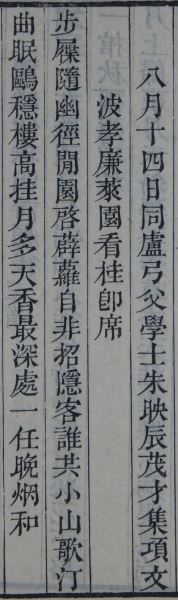 八月十四日同盧弓父學士朱映辰茂才集項文
波孝廉萊園看桂卽席
步屧隨幽徑閒園啓薜蘿自非招隱客誰共小山歌汀
曲眠鷗穩樓高挂月多天香最深處一任晚烟和